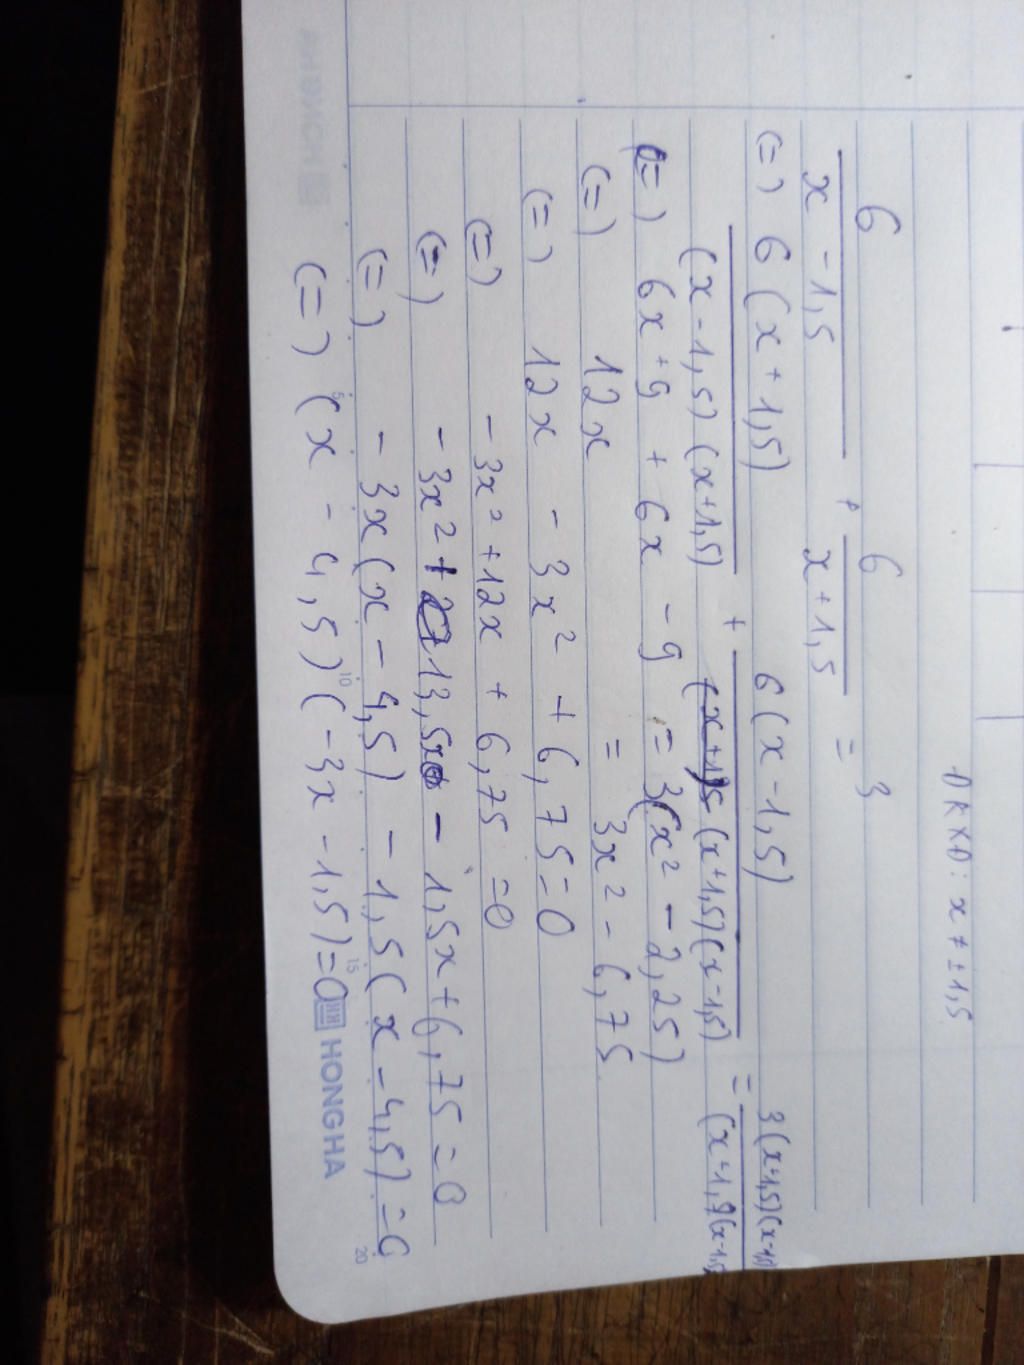 ĐKXĐ: x ≠ ±1,5
6/(x - 1,5) + 6/(x + 1,5) = 3
(=) 6(x + 1,5)/((x - 1,5)(x + 1,5)) + 6(x - 1,5)/((x + 1,5)(x - 1,5)) = 3(x+1,5)(x-1,5)/((x+1,5)(x-1,5))
(=) 6x + 9 + 6x - 9 = 3(x² - 2,25)
(=) 12x = 3x² - 6,75
(=) 12x - 3x² + 6,75 = 0
(=) -3x² + 12x + 6,75 = 0
(=) -3x² + 13,5x - 1,5x + 6,75 = 0
(=) -3x(x - 4,5) - 1,5(x - 4,5) = 0
(=) (x - 4,5)(-3x - 1,5) = 0
HONG HA
5 10 15 20